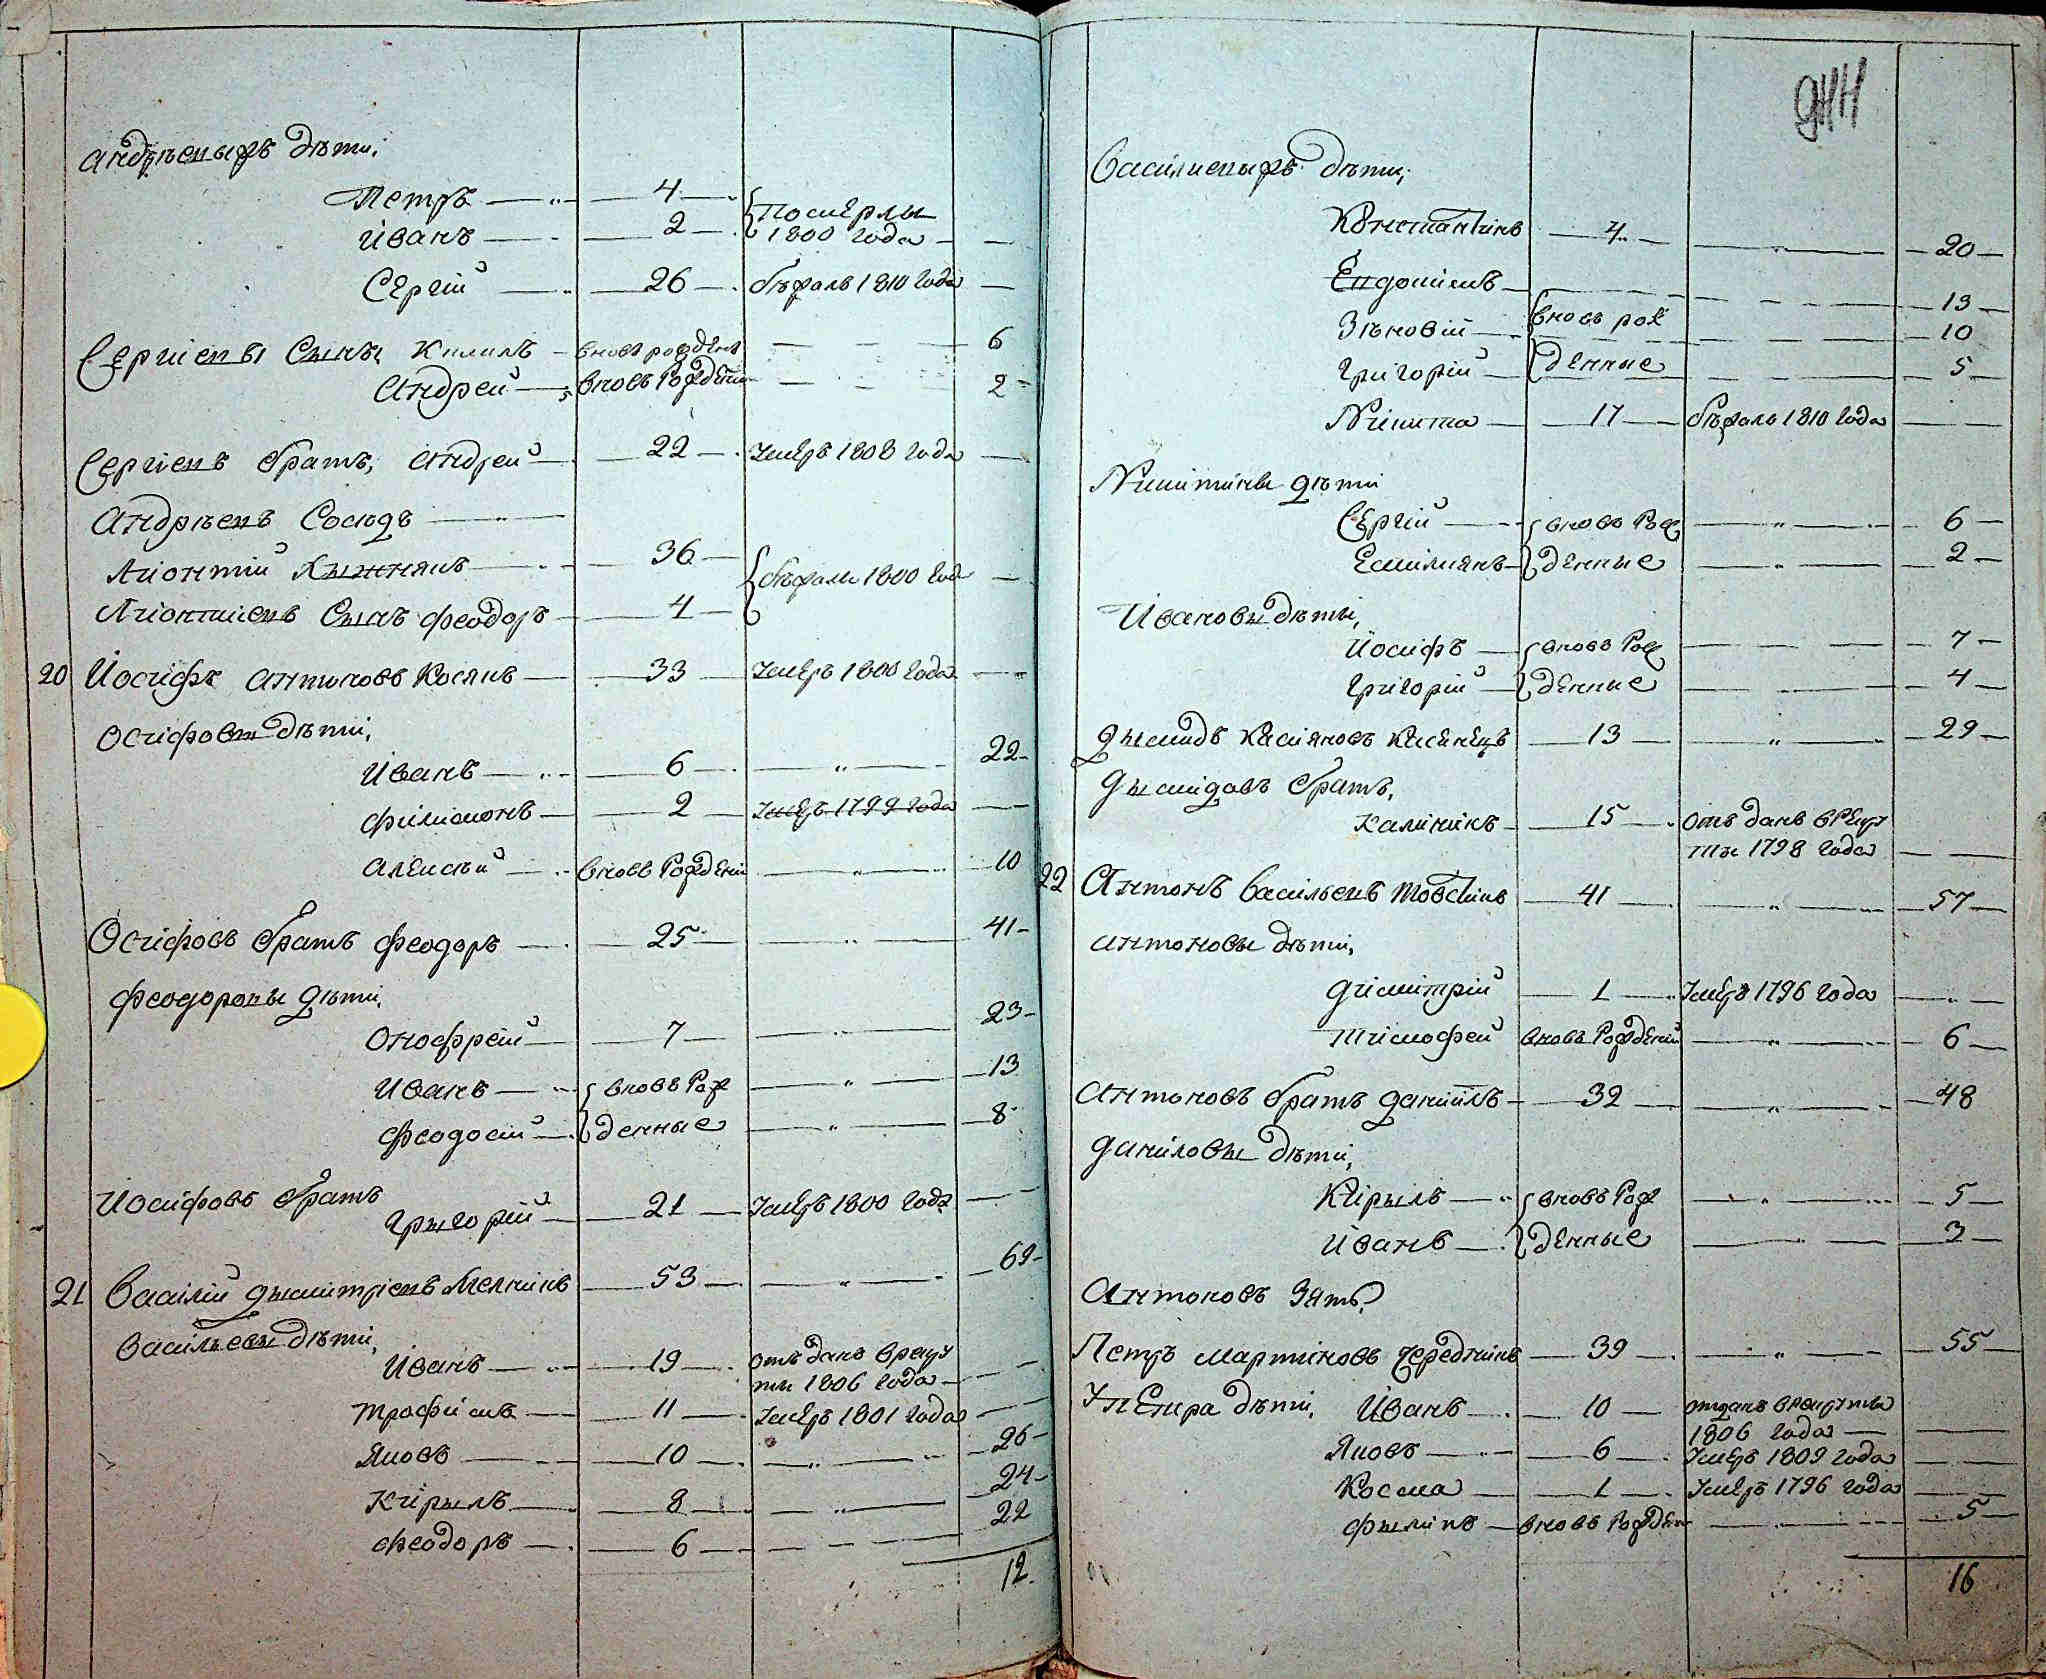 Андрѣевыхъ дѣти,
Петръ — 4 — Померлы
Иванъ — 2 — 1800 года —
Сергій — 26 — бѣжалъ 1810 года —
Сергіевы Сыны Килилъ — вновь рожденъ — 6
Андрей — вновь Рожденъ — 2
Сергіевъ братъ, Андрей — 22 — Умеръ 1808 года —
Андрѣевъ Сосѣдъ —
Ліонтій Кыжнякъ — 36 — бѣжали 1800 год —
Ліонтіевъ Сынъ Феодоръ — 4 —
20 Йосифъ Антоновъ Косянъ — 33 — Умеръ 1800 года —
Осифовы дѣти,
Иванъ — 6 — 22
Филимонъ — 2 — Умеръ 1799 года —
Алексѣй — вновь Рожденій — 10
Осифовъ братъ Феодоръ — 25 — 41
Феодоровы дѣти,
Онофрей — 7 — 23
Иванъ — вновь Рож — 13
Феодосій — денные — 8
Йосифовъ братъ
Грыгорій — 21 — Умеръ 1800 года —
21 Василій Дымитріевъ Мелникъ — 53 — 69
Васильевы дѣти,
Иванъ — 19 — отъ данъ врекру
ты 1806 года —
Трофимъ — 11 — Умеръ 1801 года —
Яковъ — 10 — 26
Кирылъ — 8 — 24
Феодоръ — 6 — 22
12
Василиевыхъ дѣти,
Константинъ — 4 — 20
Евдокимъ — 13
Зѣновій — вновь рож — 10
Григорій — денные — 5
Никита — 17 — бѣжалъ 1810 года —
Никитины дѣти
Сергій — вновь Рож — 6
Емиліянъ — денные — 2
Ивановы дѣти,
Йосифъ — вновь Рож — 7
Григорій — денные — 4
Дымидъ Касіяновъ Кисенецъ — 13 — 29
Дымидовъ братъ,
Калиникъ — 15 — отъ данъ врекру
ты 1798 года —
22 Антонъ Васильевъ Товстикъ — 41 — 57
Антоновы дѣти,
Димитрій — 1 — Умеръ 1796 года —
Тимофей — вновь Рожденій — 6
Антоновъ братъ Даниилъ — 32 — 48
Даниловы дѣти,
Кирылъ — вновь Рож — 5
Иванъ — денные — 3
Антоновъ Зять,
Петръ Мартиновъ Середникъ — 39 — 55
У Петра дѣти, Иванъ — 10 — отданъ врекруты
1806 года —
Яковъ — 6 — Умеръ 1809 года —
Косма — 1 — Умеръ 1796 года —
Фылипъ — вновь Рожден — 5
16